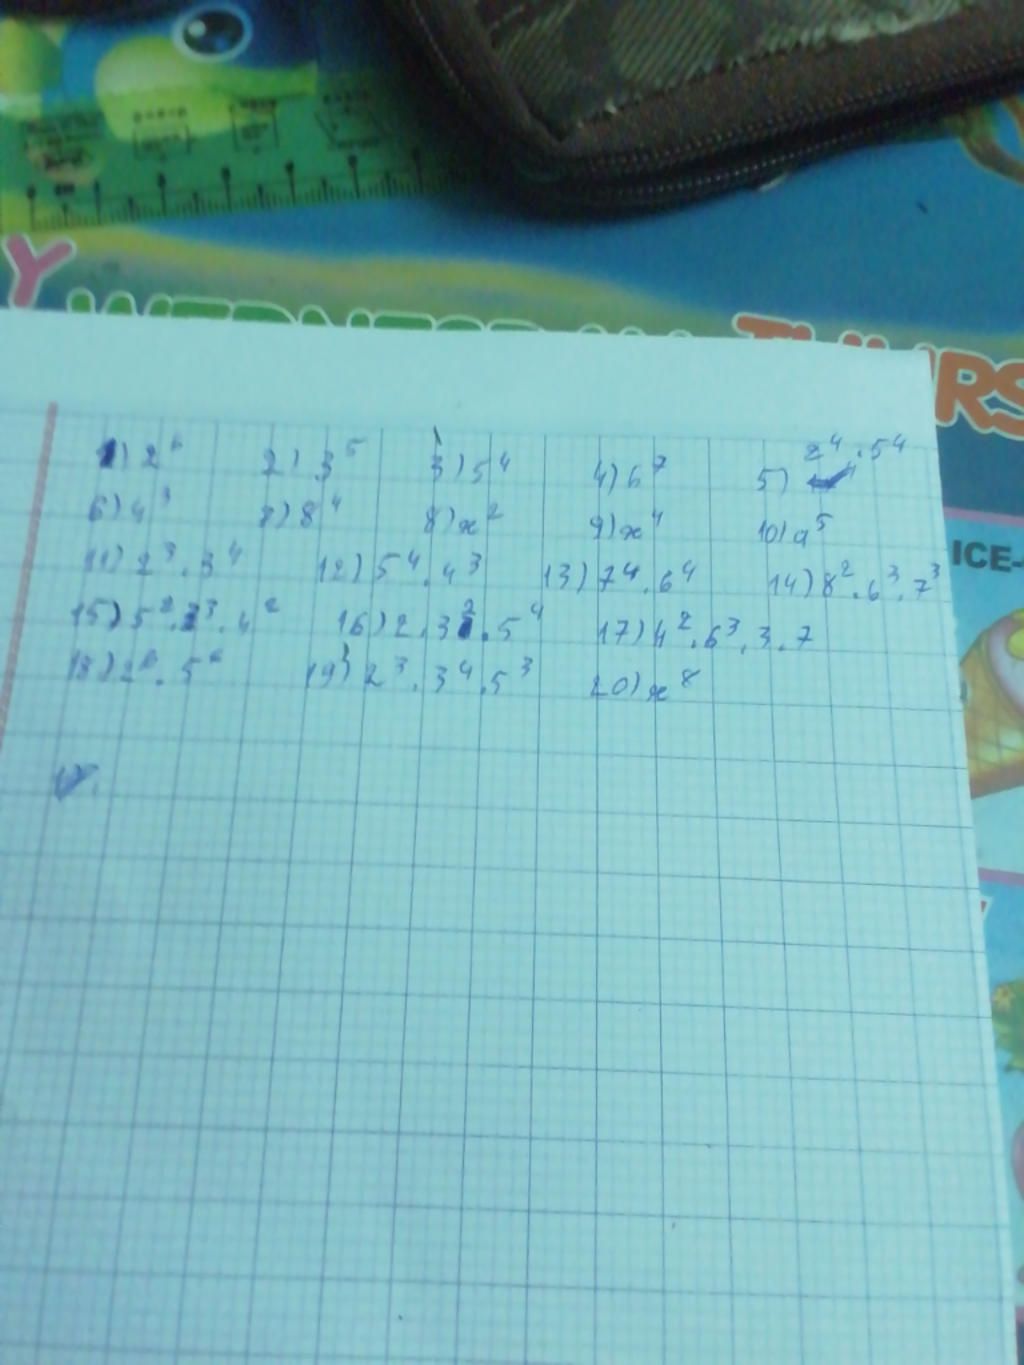 Y WEDNESDAY THURS
1) 2⁶ 2) 3⁵ 3) 5⁴ 4) 6⁷ 5) 2⁴.5⁴
6) 4³ 7) 8⁴ 8) x² 9) x⁴ 10) a⁵
ICE-
11) 2³.3⁴ 12) 5⁴.4³ 13) 7⁴.6⁴ 14) 8².6³.7³
15) 5².3³.4² 16) 2.3².5⁴ 17) 4².6³.3.7
18) 2⁶.5⁶ 19) 2³.3⁴.5³ 20) x⁸